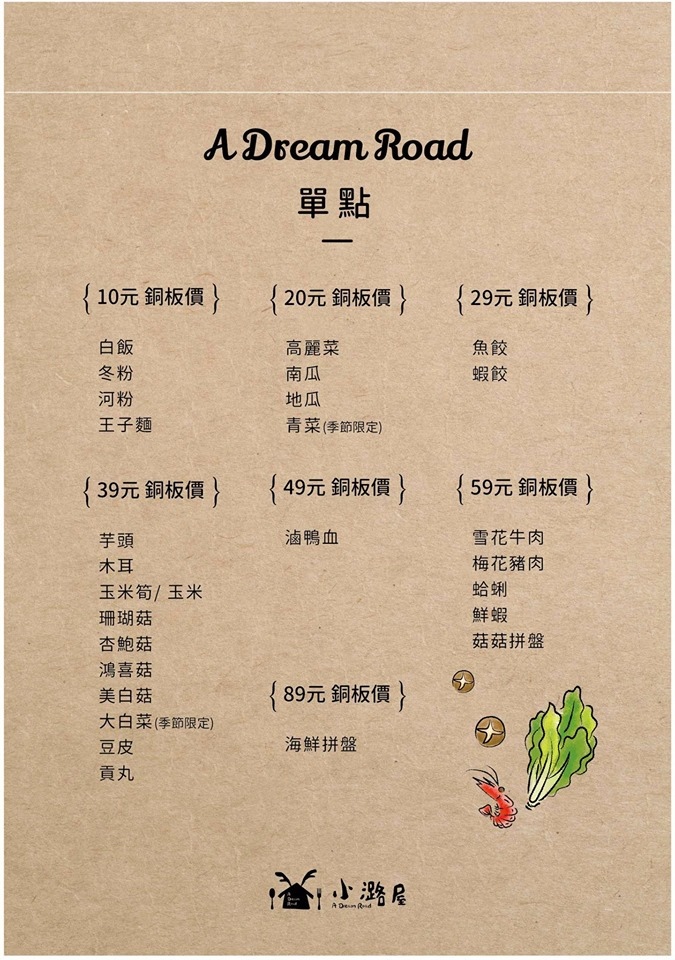 A Dream Road
單點
{ 10元 銅板價 }
白飯
冬粉
河粉
王子麵
{ 20元 銅板價 }
高麗菜
南瓜
地瓜
青菜(季節限定)
{ 29元 銅板價 }
魚餃
蝦餃
{ 39元 銅板價 }
芋頭
木耳
玉米筍/ 玉米
珊瑚菇
杏鮑菇
鴻喜菇
美白菇
大白菜(季節限定)
豆皮
貢丸
{ 49元 銅板價 }
滷鴨血
{ 59元 銅板價 }
雪花牛肉
梅花豬肉
蛤蜊
鮮蝦
菇菇拼盤
{ 89元 銅板價 }
海鮮拼盤
A
Dream
Road
小潞屋
A Dream Road